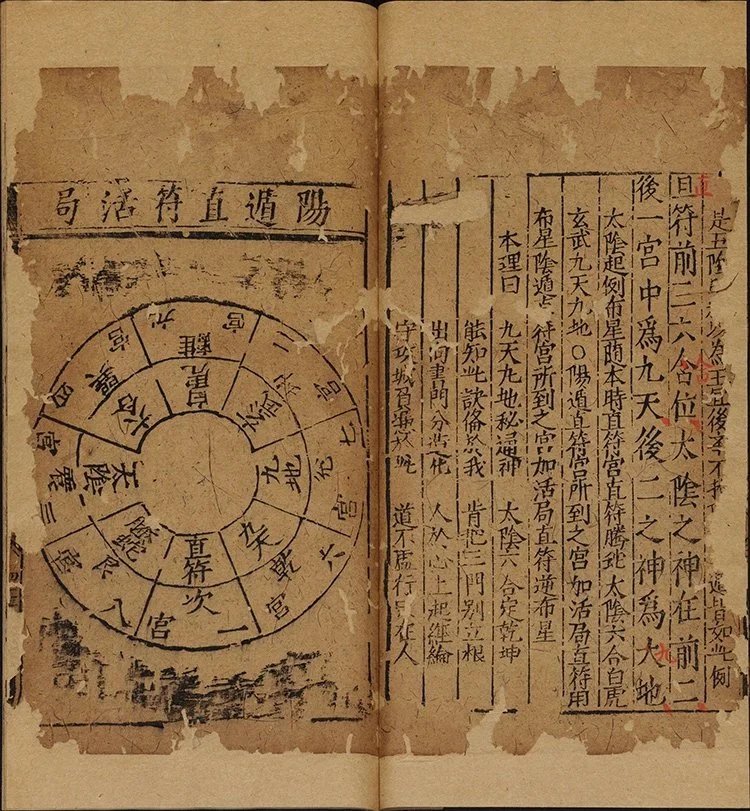 是五陰 為王 後 不 還皆如此例
旦符前三六合位太陰之神在前二
直
後一宮中爲九天後二之神爲大地
九
太陰起例布星隨本時直符宮直符螣蛇太陰六合白虎
玄武九天九地〇陽遁直符宮所到之宮加活局直符用
布星陰遁 符宮所到之宮加活局直符逆布星
本理曰 九天九地秘通神 太陰六合定乾坤
能知此訣俻於我 肯把三門別立根
出河畫門分造化 人於心上起經綸
守攻城 道不虛行 在人
陽遁直符活局
九宮 離 白虎
二宮 玄武
七宮 兌 九地
六宮 乾 九天
一宮 坎 直符
八宮 艮 螣蛇
三宮 震 太陰
四宮 巽 六合